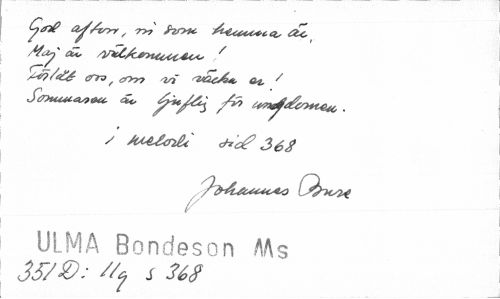 God afton, ni som hemma är,
Maj är välkommen!
Förlåt oss, om vi väcka er!
Sommaren är ljuflig för ungdomen.
1 melodi sid 368
Johannes Bure
ULMA Bondeson Ms
351 D: 11q s 368